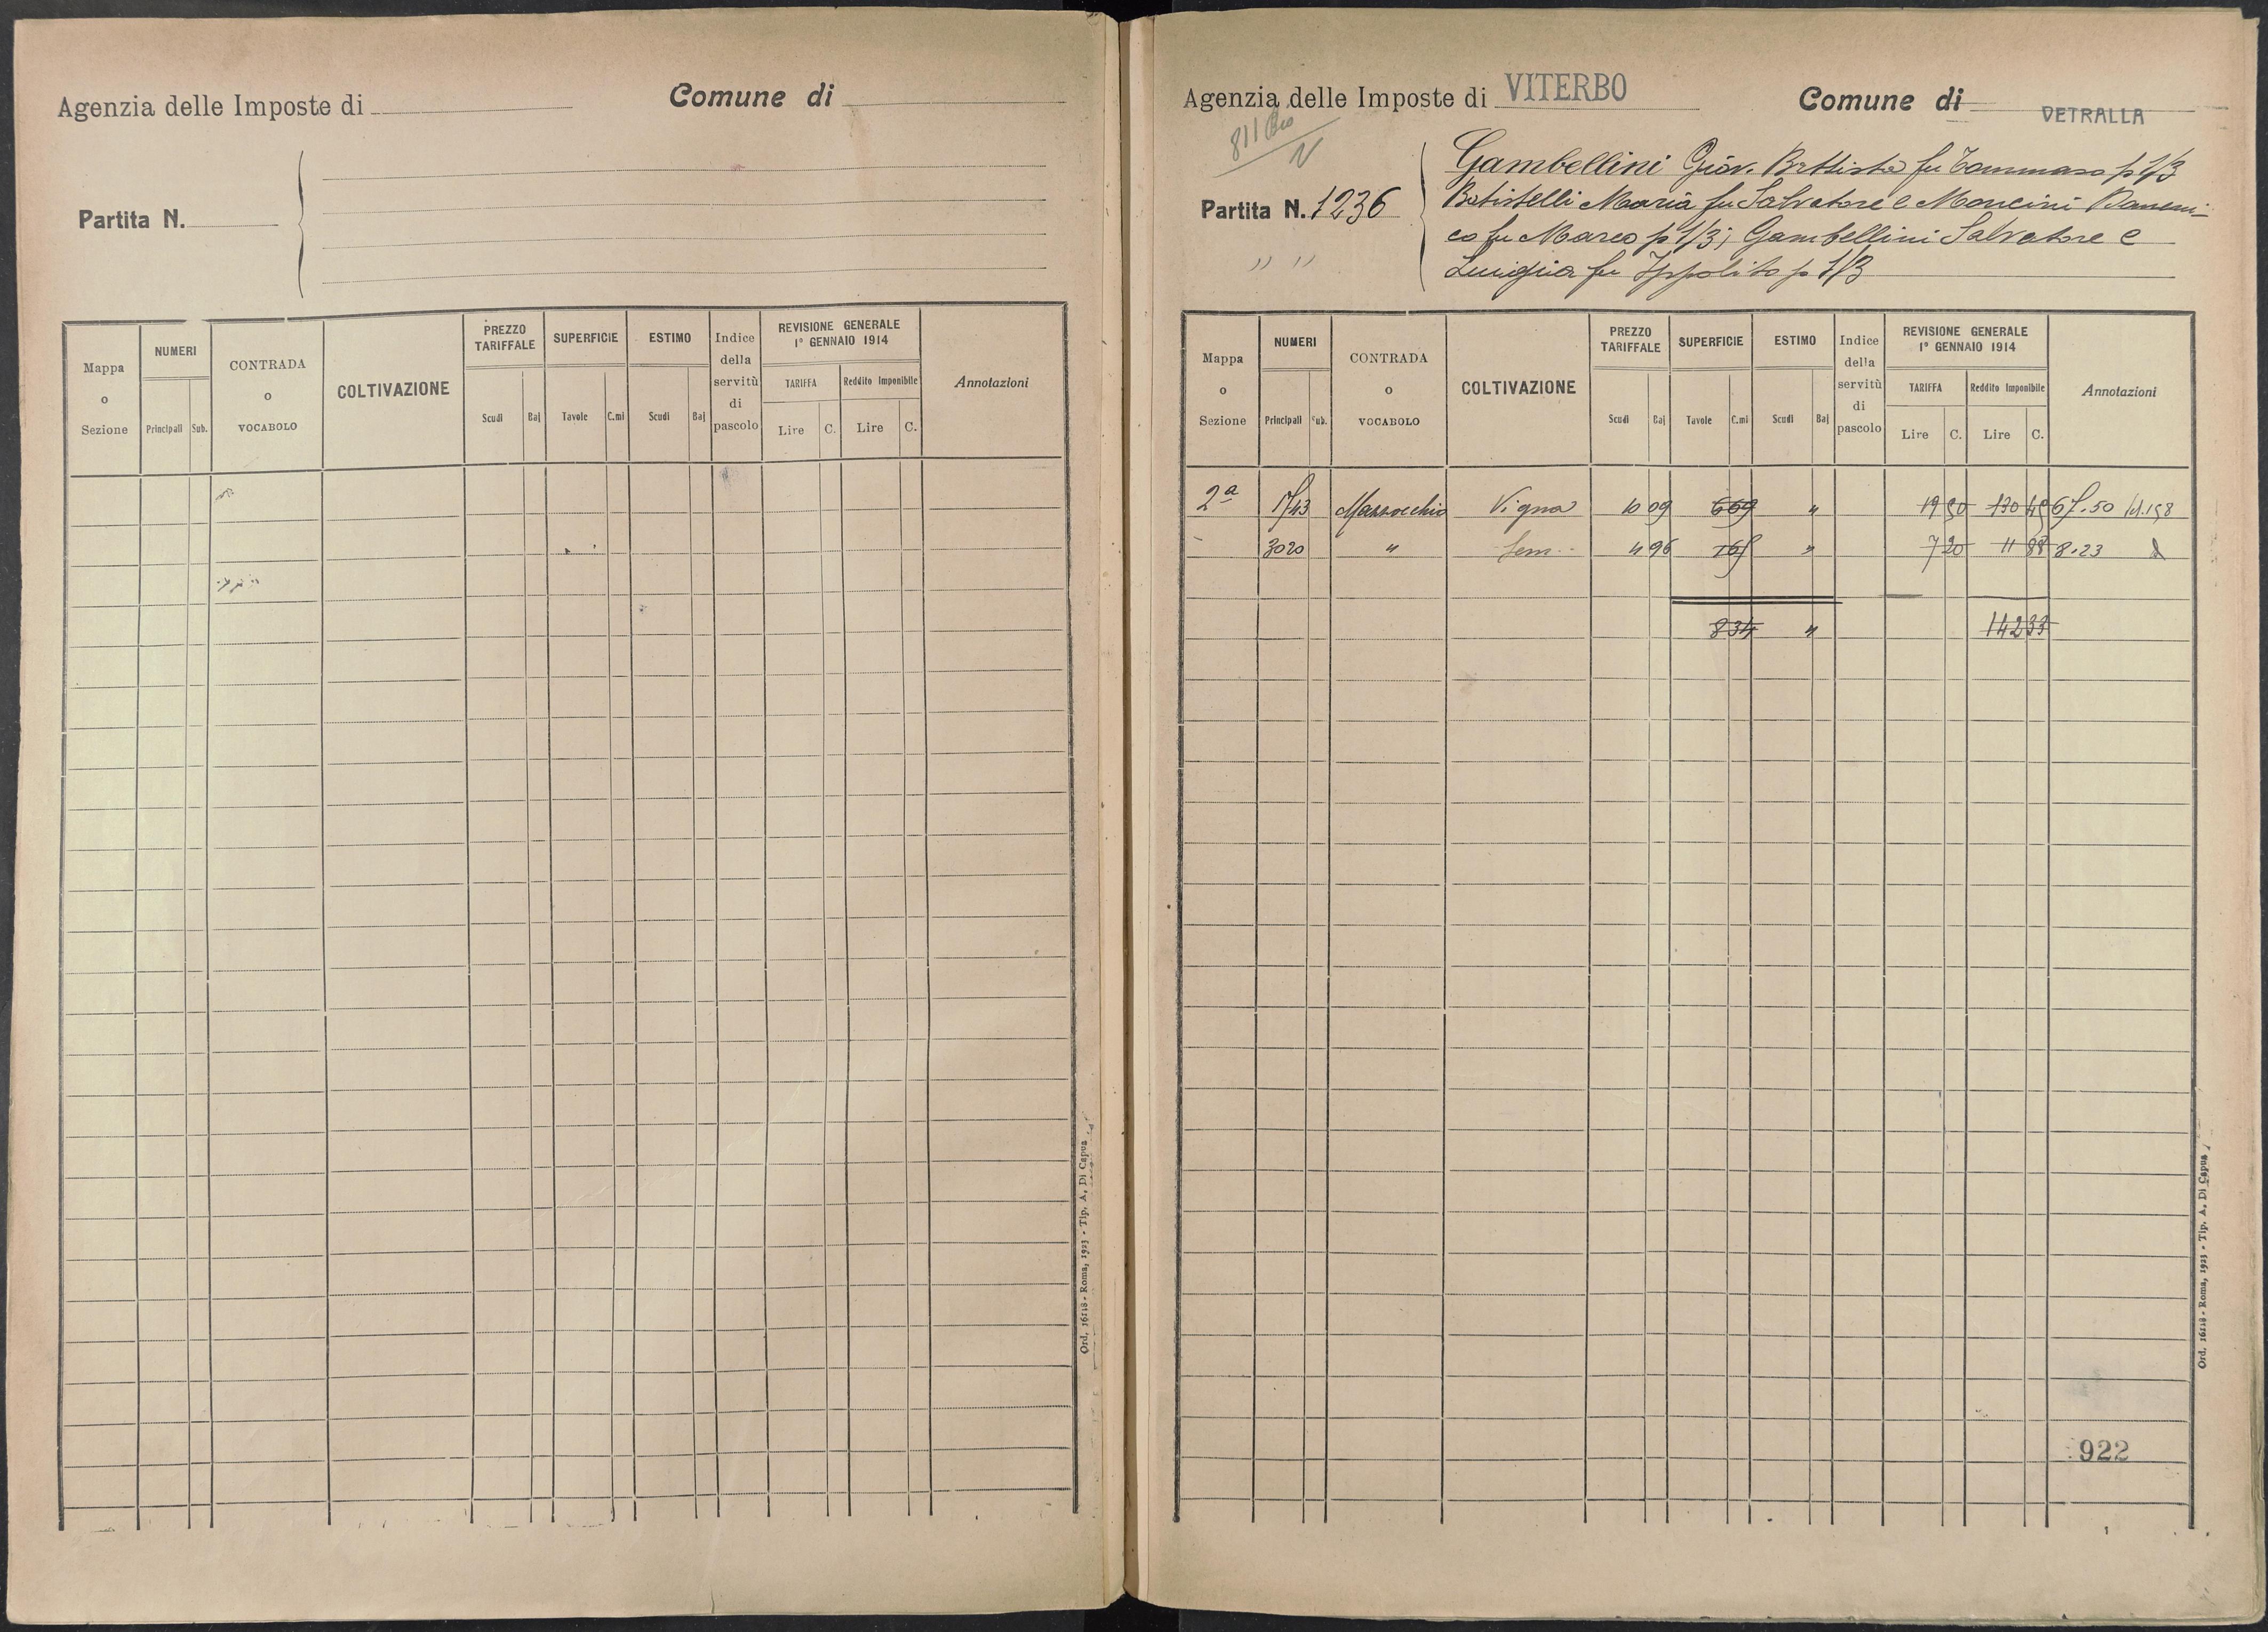 Agenzia delle Imposte di
Comune di
Partita N.
Mappa o Sezione
NUMERI
Principali Sub.
CONTRADA o VOCABOLO
COLTIVAZIONE
PREZZO TARIFFALE
Scudi Baj
SUPERFICIE
Tavole C.mi
ESTIMO
Scudi Baj
Indice della servitù di pascolo
REVISIONE GENERALE
1° GENNAIO 1914
TARIFFA
Lire C.
Reddito Imponibile
Lire C.
Annotazioni
Ord. 16118 - Roma, 1923 - Tip. A. Di Capua
Agenzia delle Imposte di VITERBO
Comune di VETRALLA
811
Partita N. 1236
" "
Gambellini Giov. Battista fu Tommaso p 1/3
Batistelli Maria fu Salvatore e Mancini Domeni-
co fu Marco p 1/3; Gambellini Salvatore e
Luigia fu Ippolito p 1/3
Mappa o Sezione
NUMERI
Principali Sub.
CONTRADA o VOCABOLO
COLTIVAZIONE
PREZZO TARIFFALE
Scudi Baj
SUPERFICIE
Tavole C.mi
ESTIMO
Scudi Baj
Indice della servitù di pascolo
REVISIONE GENERALE
1° GENNAIO 1914
TARIFFA
Lire C.
Reddito Imponibile
Lire C.
Annotazioni
2a Mazzocchio Vigna 10 09 669 " 19 50 130 45
3020 " Sem 4 96 165 " 7 20 11 88 8.23
834 " 142 33
922
Ord. 16118 - Roma, 1923 - Tip. A. Di Capua